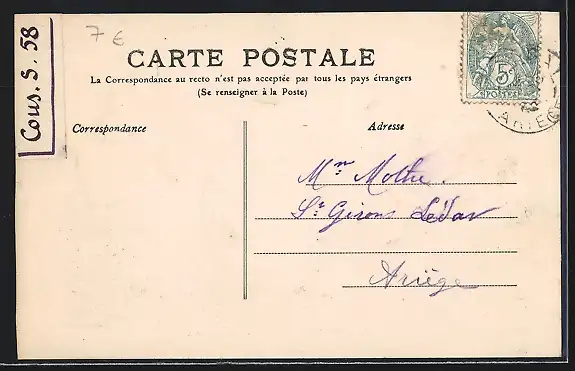 Cous. S. 58
7 €
CARTE POSTALE
La Correspondance au recto n'est pas acceptée par tous les pays étrangers
(Se renseigner à la Poste)
Correspondance
Adresse
5c
POSTES
ARIEGE
Mr Mothe.
St Girons Lédar
Ariège